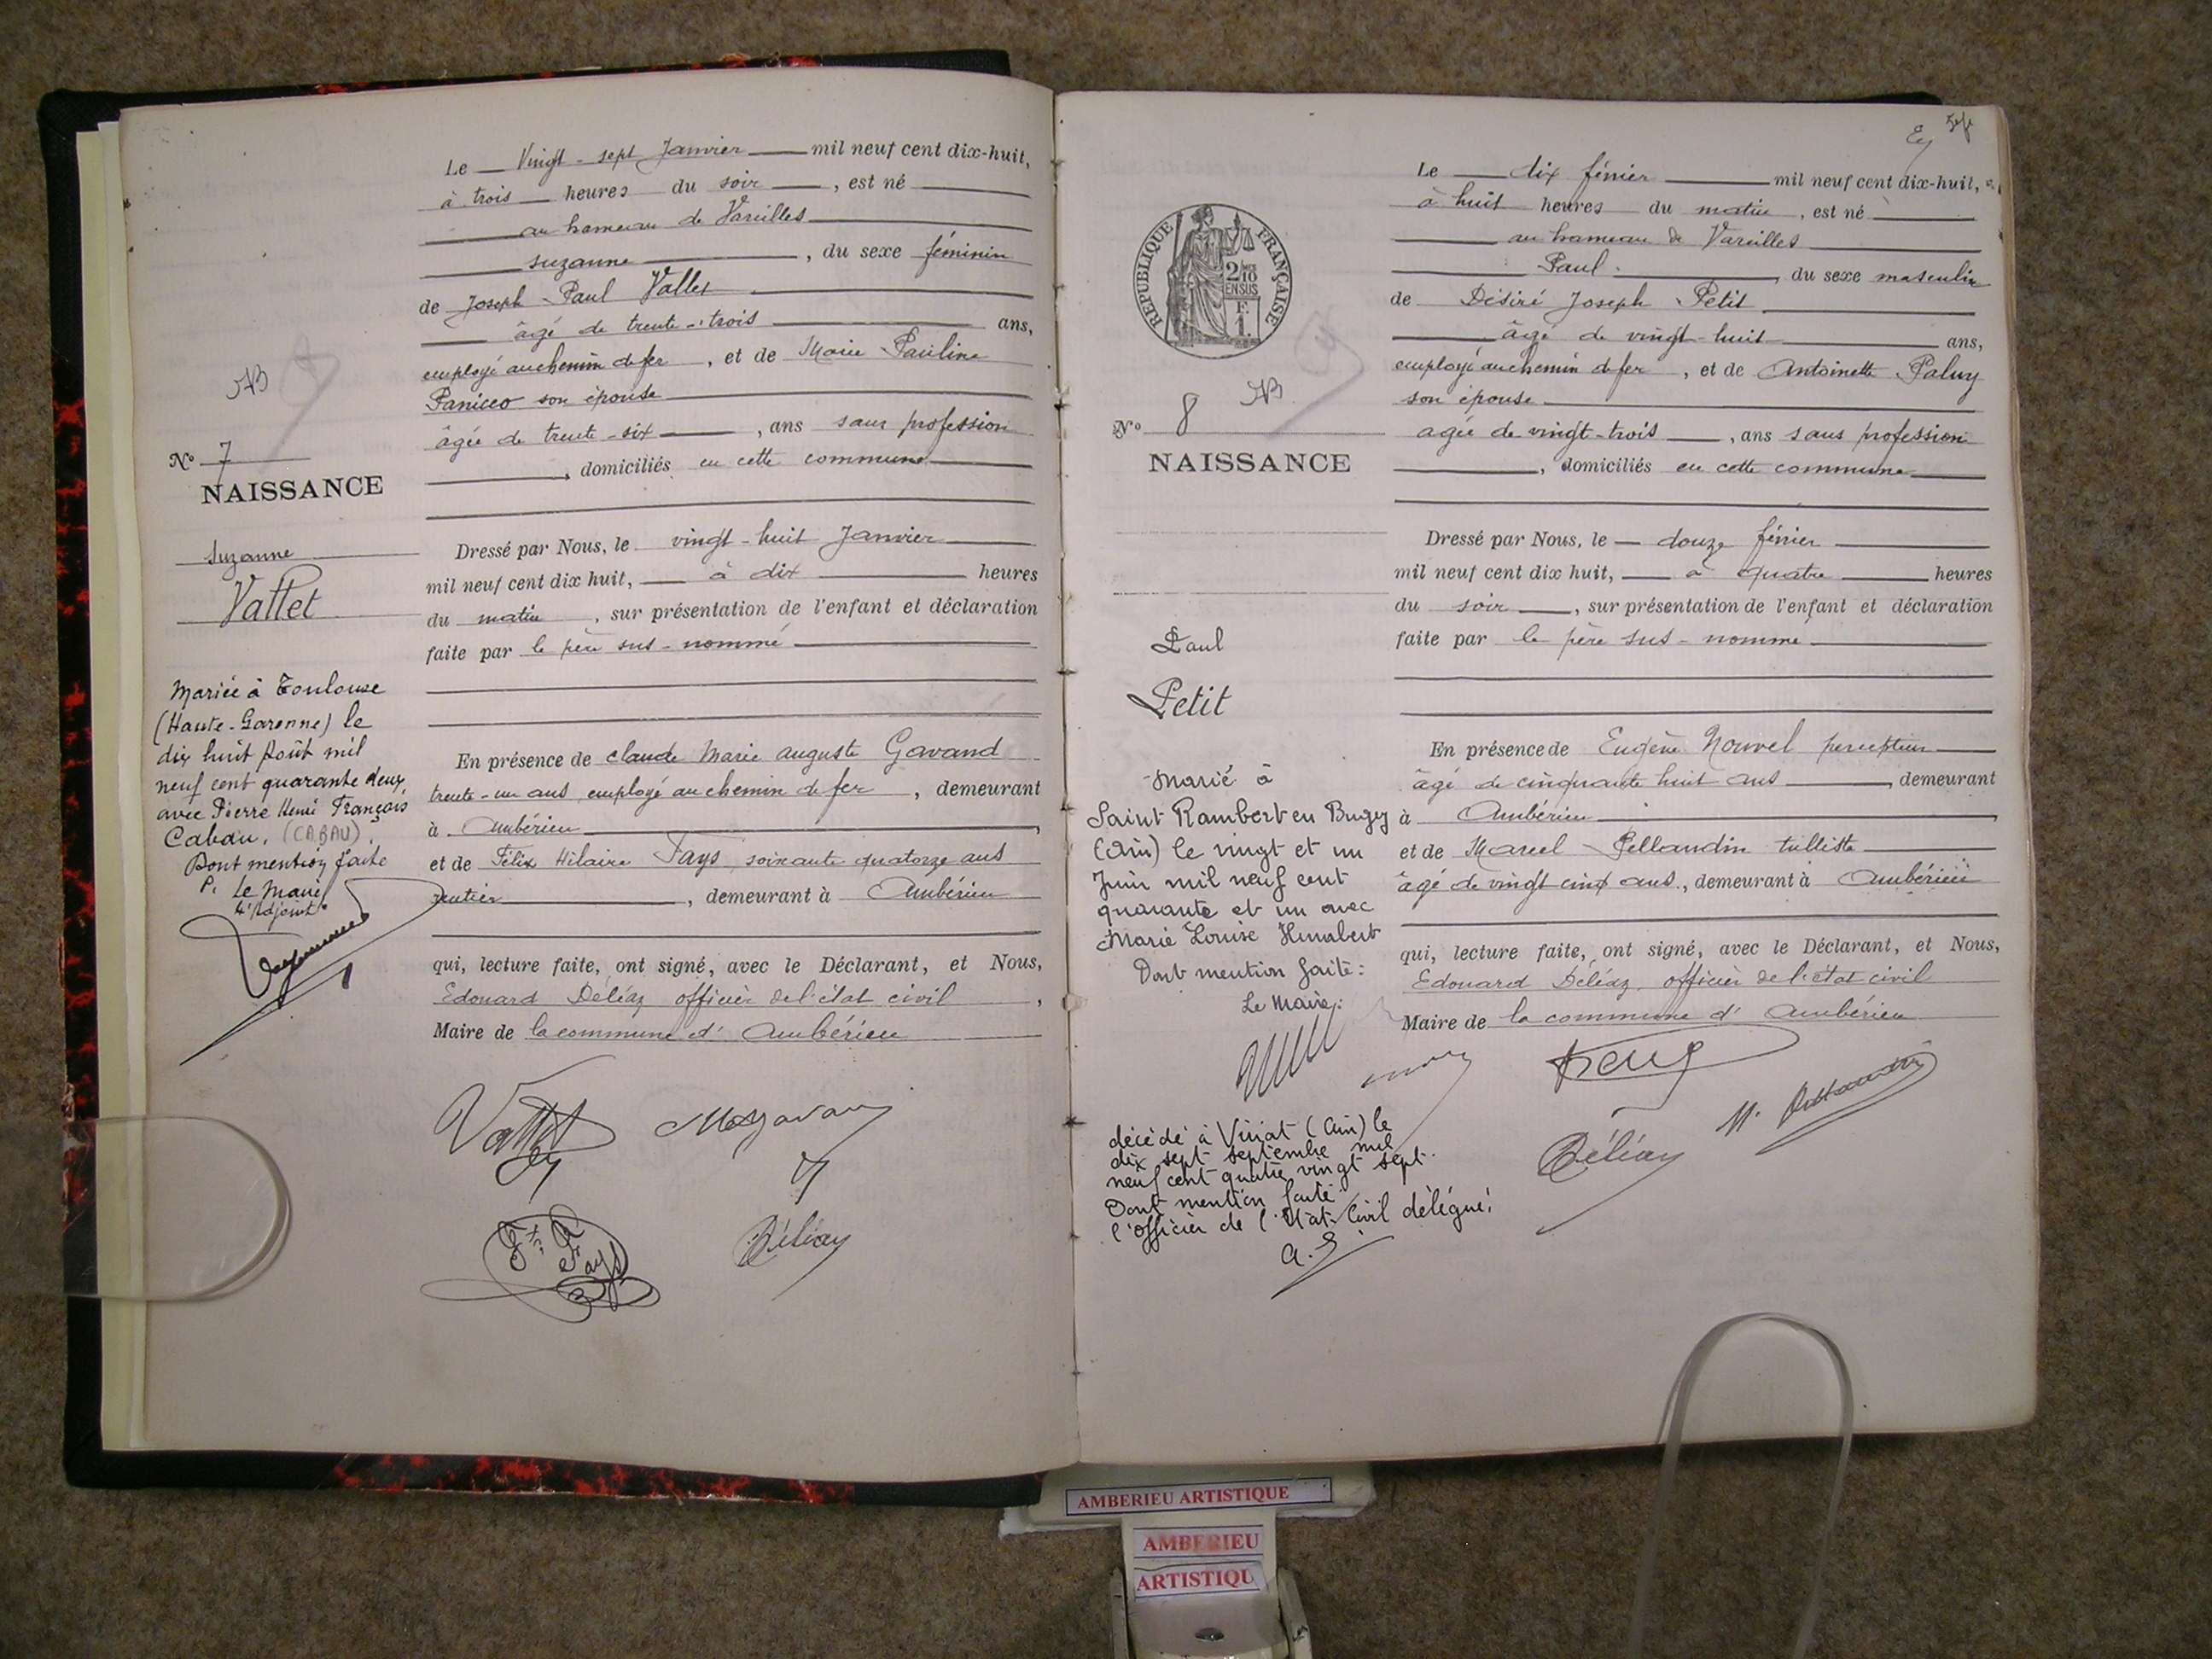 Le Vingt-sept Janvier mil neuf cent dix-huit,
à trois heures du soir, est né
au hameau de Vareilles
suzanne, du sexe féminin
de Joseph-Paul Vallet
âgé de trente-trois ans,
employé au chemin de fer, et de Marie Pauline
son épouse
âgée de trente-six, ans sans profession
, domiciliés en cette commune
NB
N° 7
NAISSANCE
Suzanne
Vallet
Dressé par Nous, le vingt-huit Janvier
mil neuf cent dix huit, à dix heures
du matin, sur présentation de l'enfant et déclaration
faite par le père sus-nommé
Mariée à Toulouse
(Haute-Garonne) le
dix huit Août mil
neuf cent quarante deux
avec Pierre Henri François
Cabau. (CABAU).
Dont mention faite
P. Le Maire
L'Adjoint
En présence de claude Marie auguste Gavand
trente-un ans, employé au chemin de fer, demeurant
à Ambérieu
et de Félix Hilaire Pays, soixante quatorze ans
rentier, demeurant à Ambérieu
qui, lecture faite, ont signé, avec le Déclarant, et Nous,
Edouard Déléaz officier de l'état civil,
Maire de la commune d'Ambérieu
Vallet
Déléaz
Le dix février mil neuf cent dix-huit,
à huit heures du matin, est né
au hameau de Vareilles
Paul, du sexe masculin
de Désiré Joseph Petit
âgé de vingt-huit ans,
employé au chemin de fer, et de Antoinette Paluy
son épouse
agée de vingt-trois, ans sans profession
, domiciliés en cette commune
REPUBLIQUE FRANÇAISE
2/10 EN SUS
F. 1.
NB.
N° 8
NAISSANCE
Paul
Petit
Dressé par Nous, le douze février
mil neuf cent dix huit, à quatre heures
du soir, sur présentation de l'enfant et déclaration
faite par le père sus-nommé
Marié à
Saint Rambert en Bugey
(Ain) le vingt et un
Juin mil neuf cent
quarante et un avec
Marie Louise Humbert
Dont mention faite:
Le Maire:
décédé à Viriat (Ain) le
dix sept septembre mil
neuf cent quatre vingt sept.
Dont mention faite
l'officier de l'Etat Civil délégué:
En présence de Eugène Nouvel percepteur
âgé de cinquante huit ans, demeurant
à Ambérieu
et de Marcel Pellaudin tulliste
âgé de vingt cinq ans, demeurant à Ambérieu
qui, lecture faite, ont signé, avec le Déclarant, et Nous,
Edouard Déléaz, officier de l'état civil
Maire de la commune d'Ambérieu
Déléaz
AMBERIEU ARTISTIQUE
AMBERIEU
ARTISTIQU